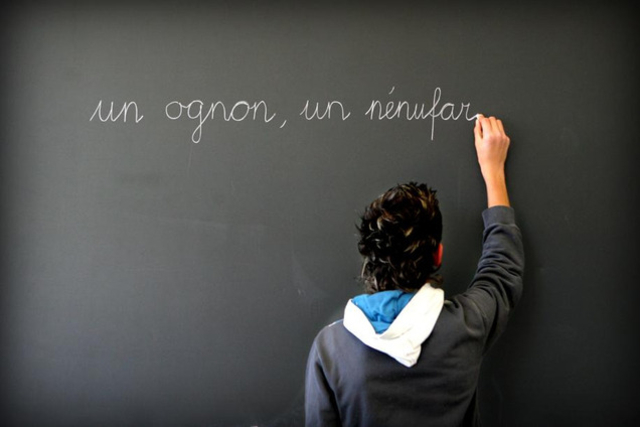 un ognon, un nénufar